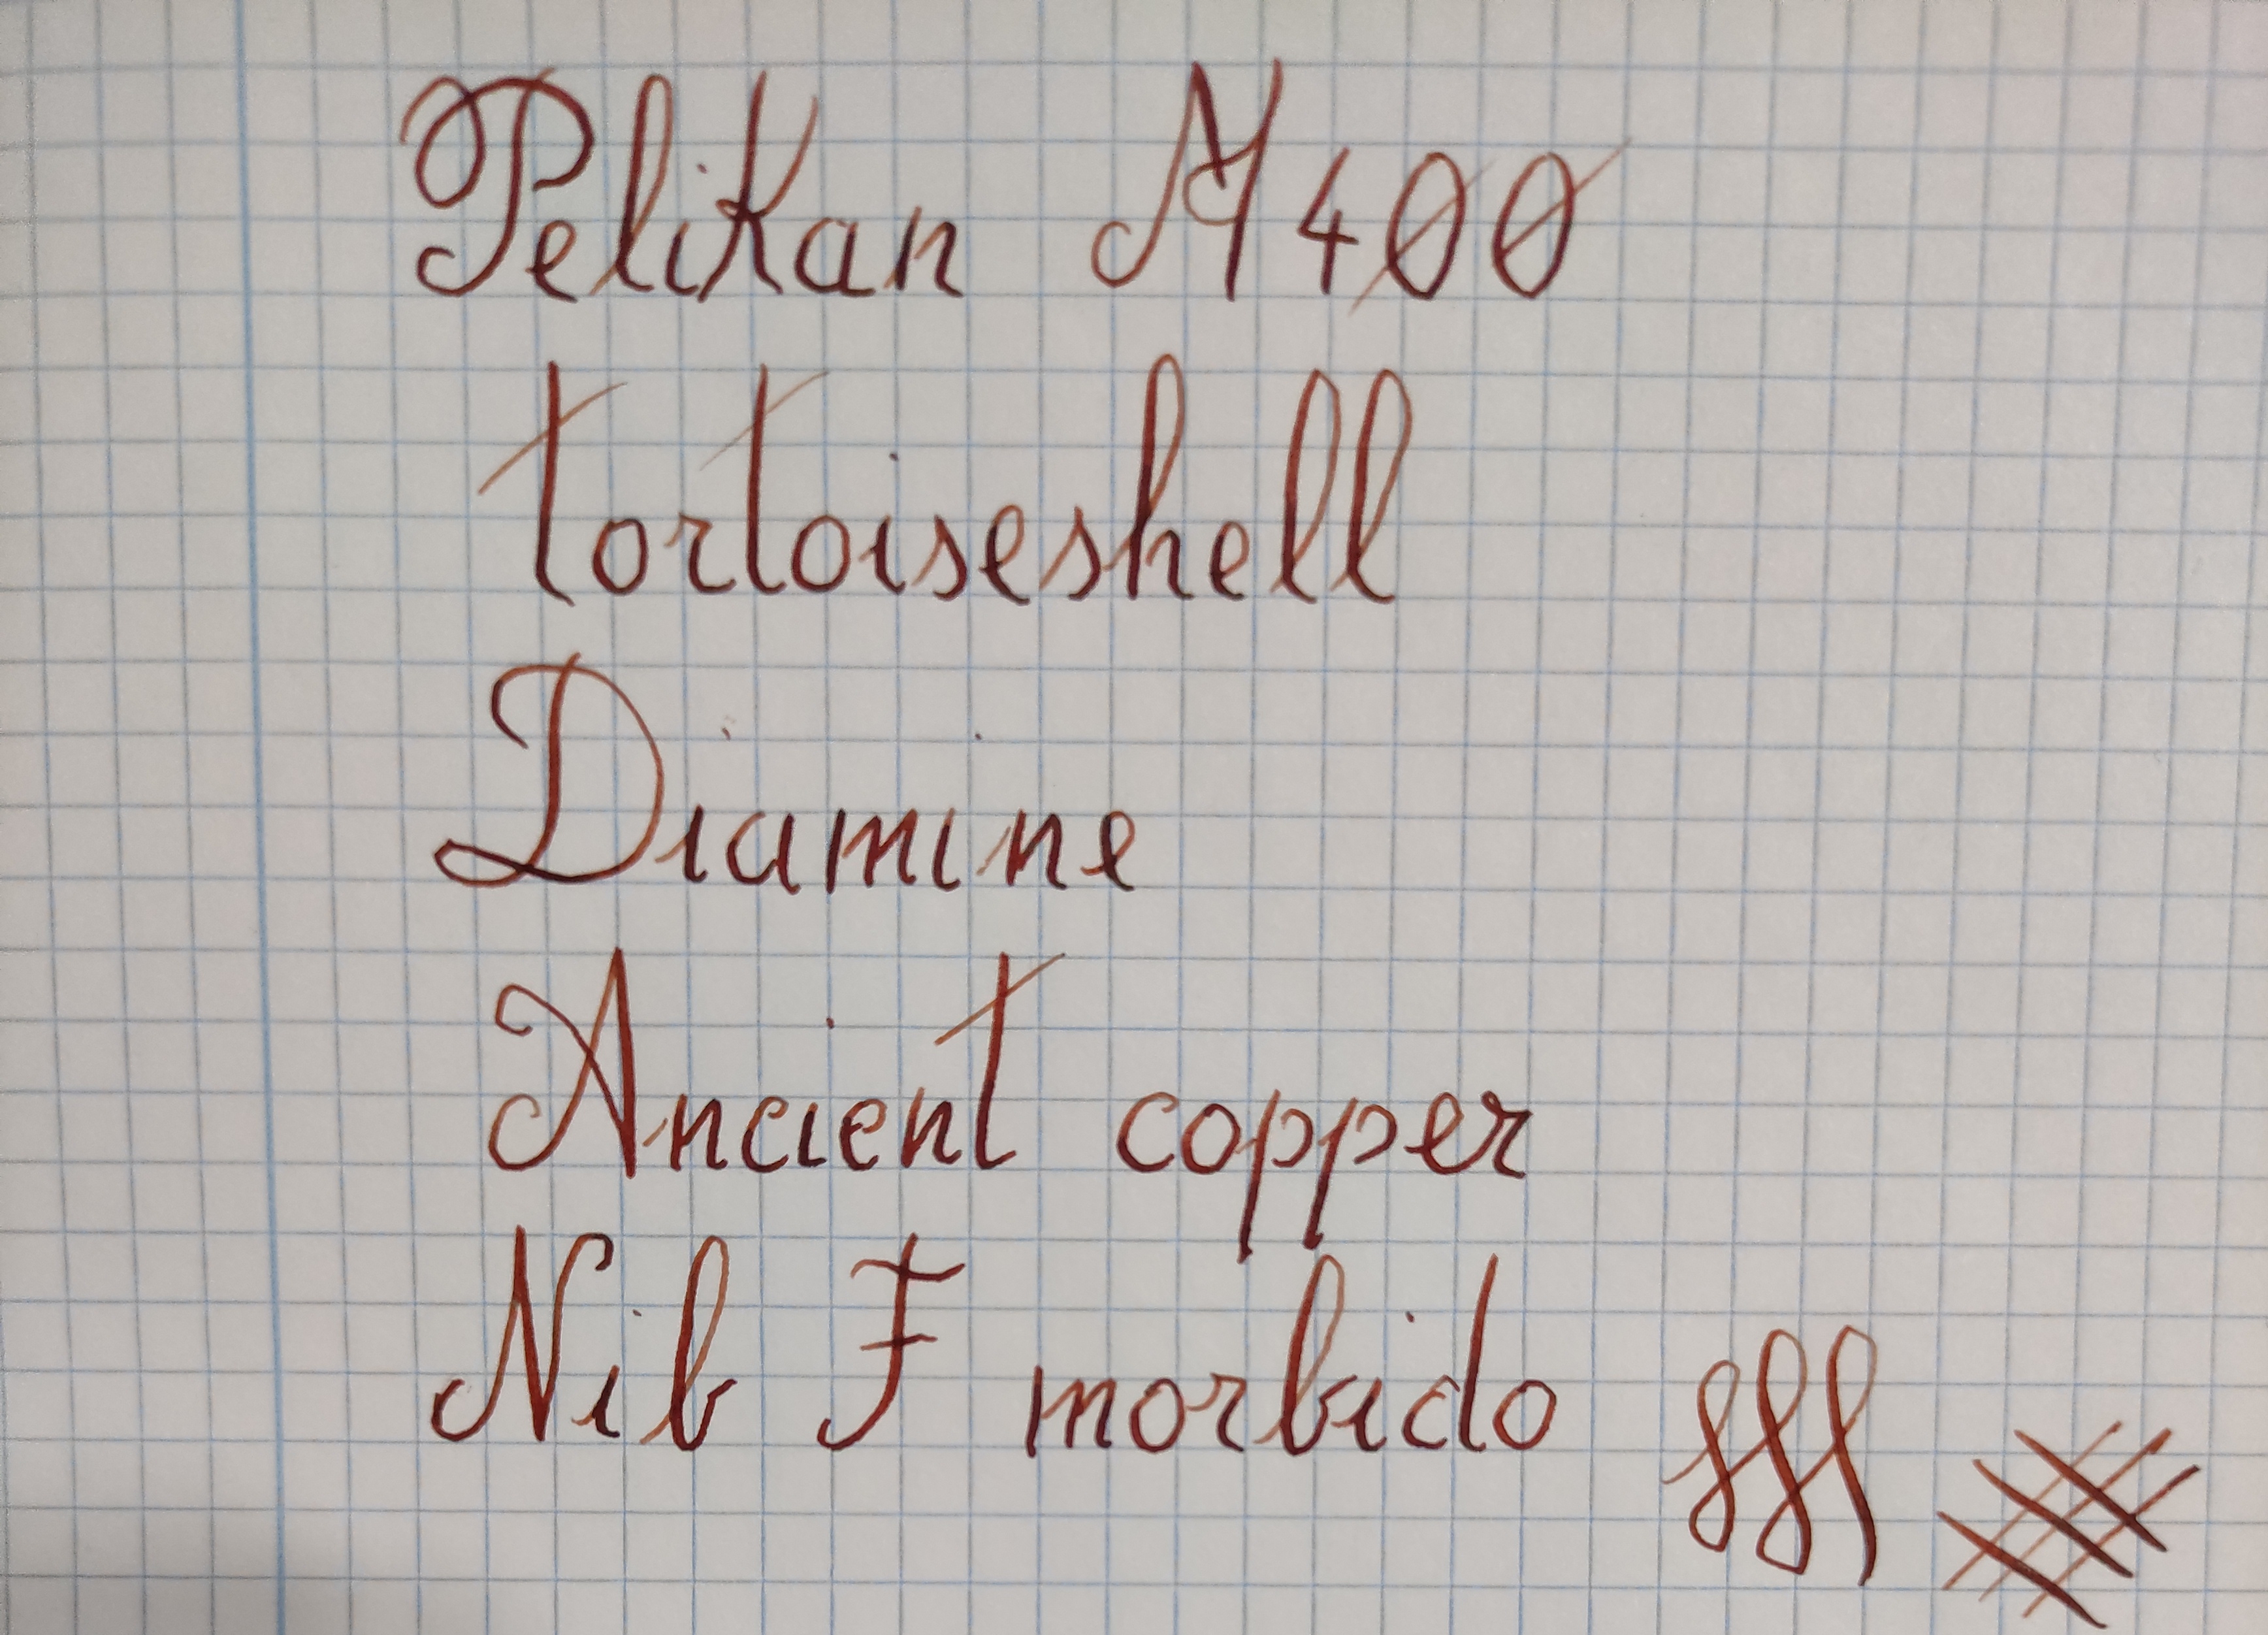 Pelikan M400
tortoiseshell
Diamine
Ancient copper
Nib F morbido fff